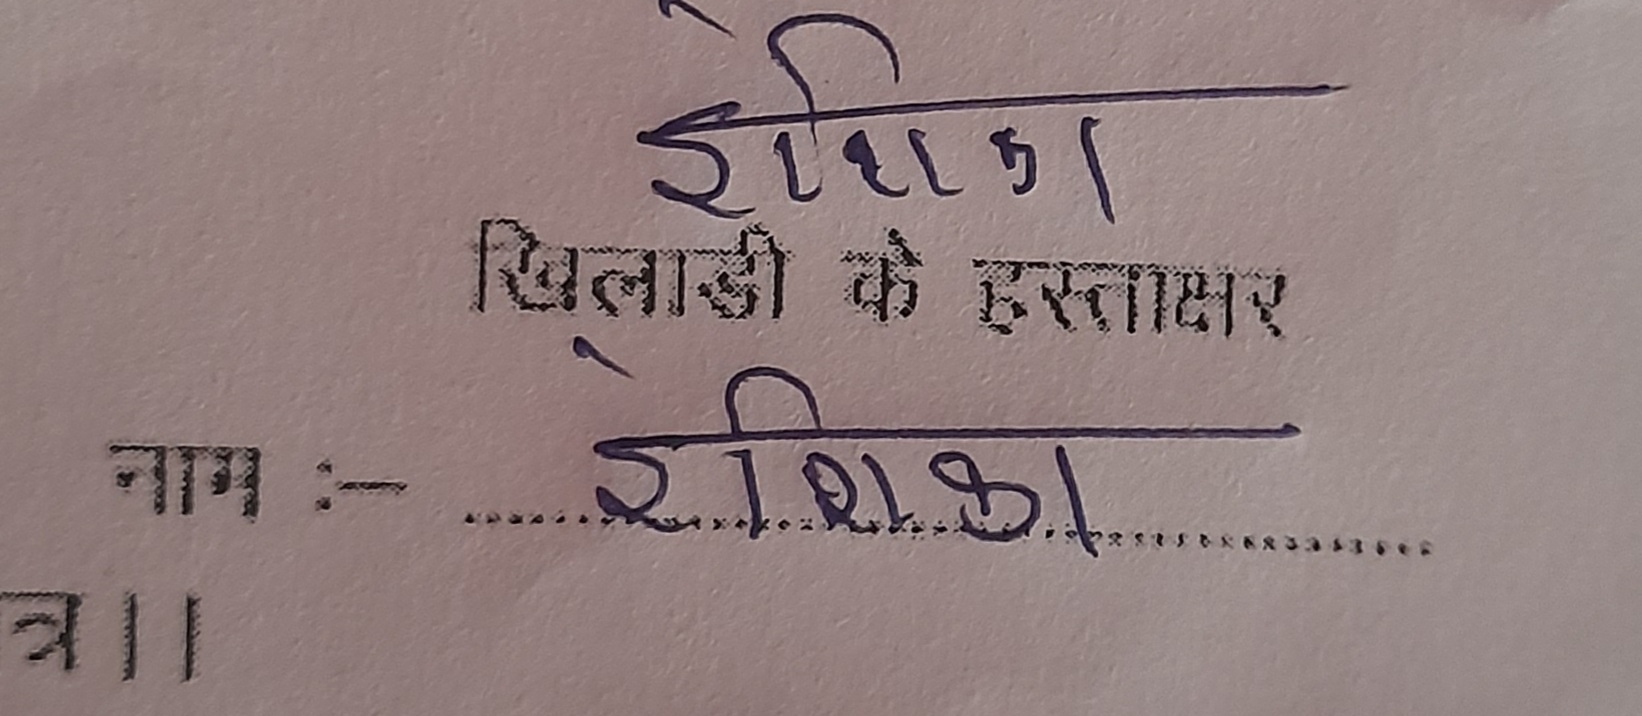 रेशिका
खिलाडी के हस्ताक्षर
नाम :- रेशिका
त्र।।